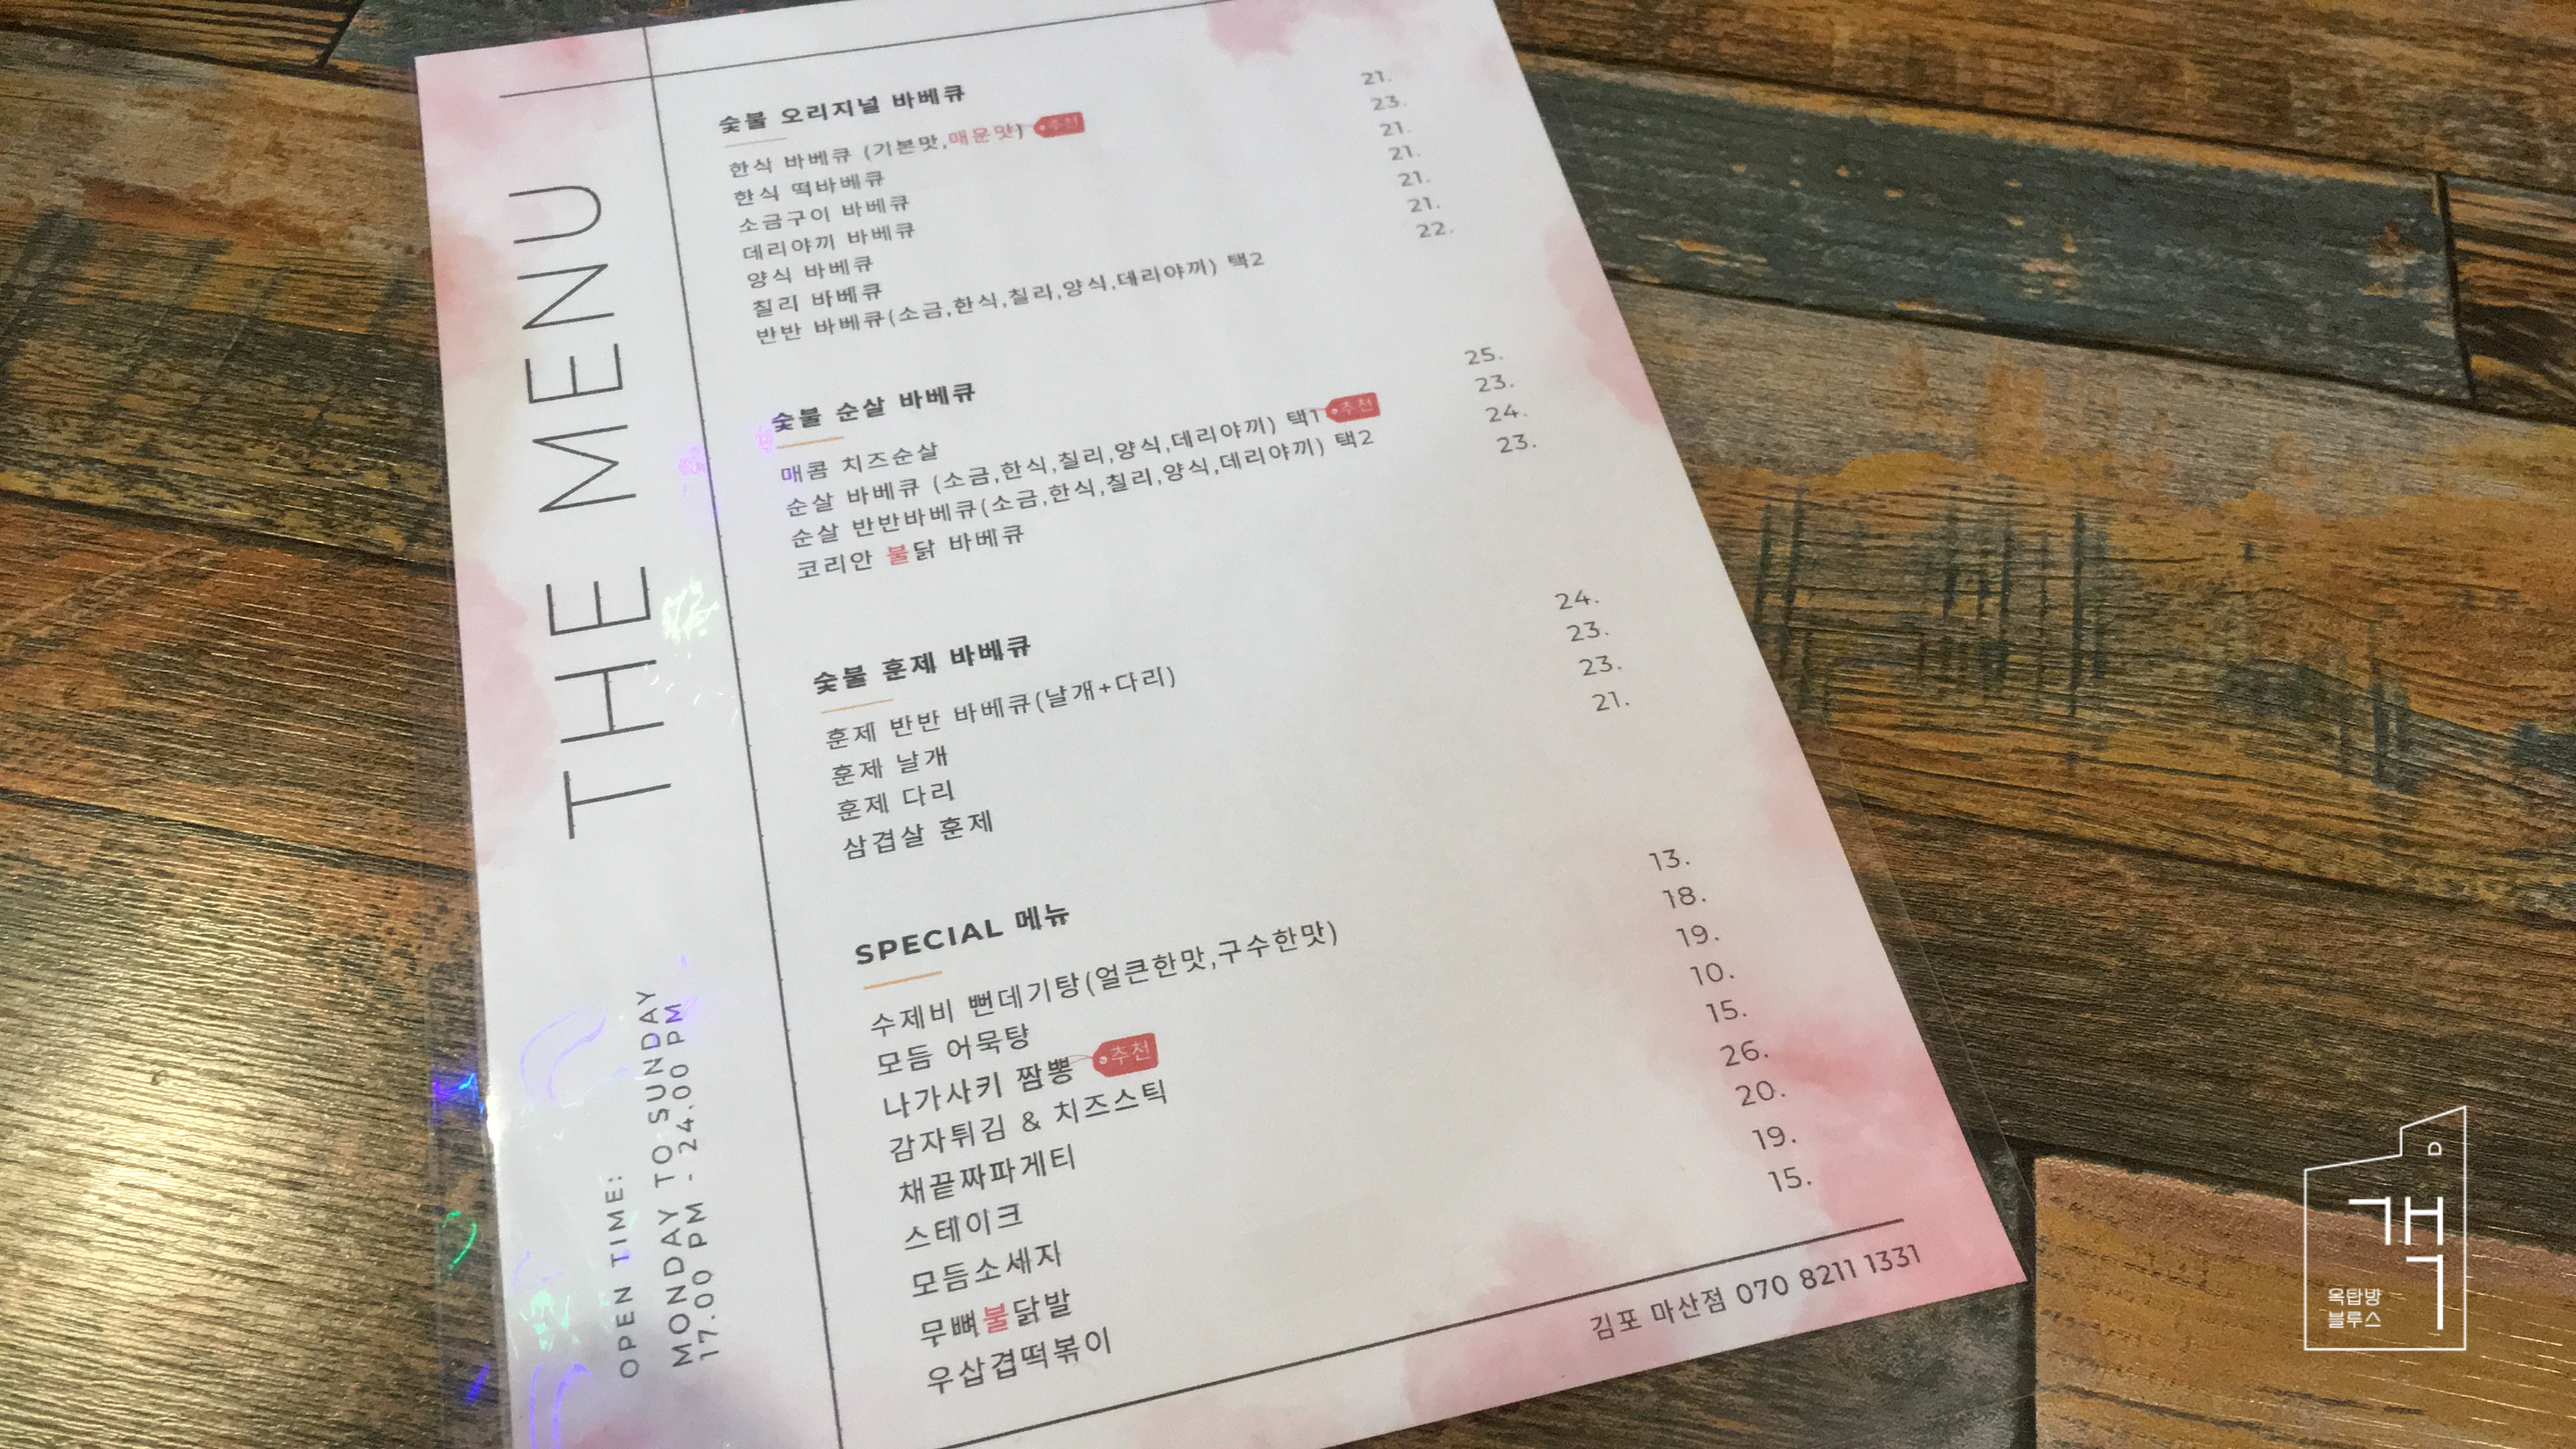 THE MENU
OPEN TIME:
MONDAY TO SUNDAY
17.00 PM - 24.00 PM
숯불 오리지널 바베큐
한식 바베큐 (기본맛,매운맛) 추천 21.
한식 떡바베큐 23.
소금구이 바베큐 21.
데리야끼 바베큐 21.
양식 바베큐 21.
칠리 바베큐 21.
반반 바베큐(소금,한식,칠라,양식,데리야끼) 택2 22.
숯불 순살 바베큐
매콤 치즈순살 25.
순살 바베큐 (소금,한식,칠리,양식,데리야끼) 택1 추천 23.
순살 반반바베큐(소금,한식,칠리,양식,데리야끼) 택2 24.
코리안 불닭 바베큐 23.
숯불 훈제 바베큐
훈제 반반 바베큐(날개+다리) 24.
훈제 날개 23.
훈제 다리 23.
삼겹살 훈제 21.
SPECIAL 메뉴
수제비 뻔데기탕(얼큰한맛,구수한맛) 13.
모듬 어묵탕 18.
나가사키 짬뽕 추천 19.
감자튀김 & 치즈스틱 10.
채끝짜파게티 15.
스테이크 26.
모듬소세지 20.
무뼈불닭발 19.
우삼겹떡볶이 15.
김포 마산점 070 8211 1331
객
옥탑방
블루스